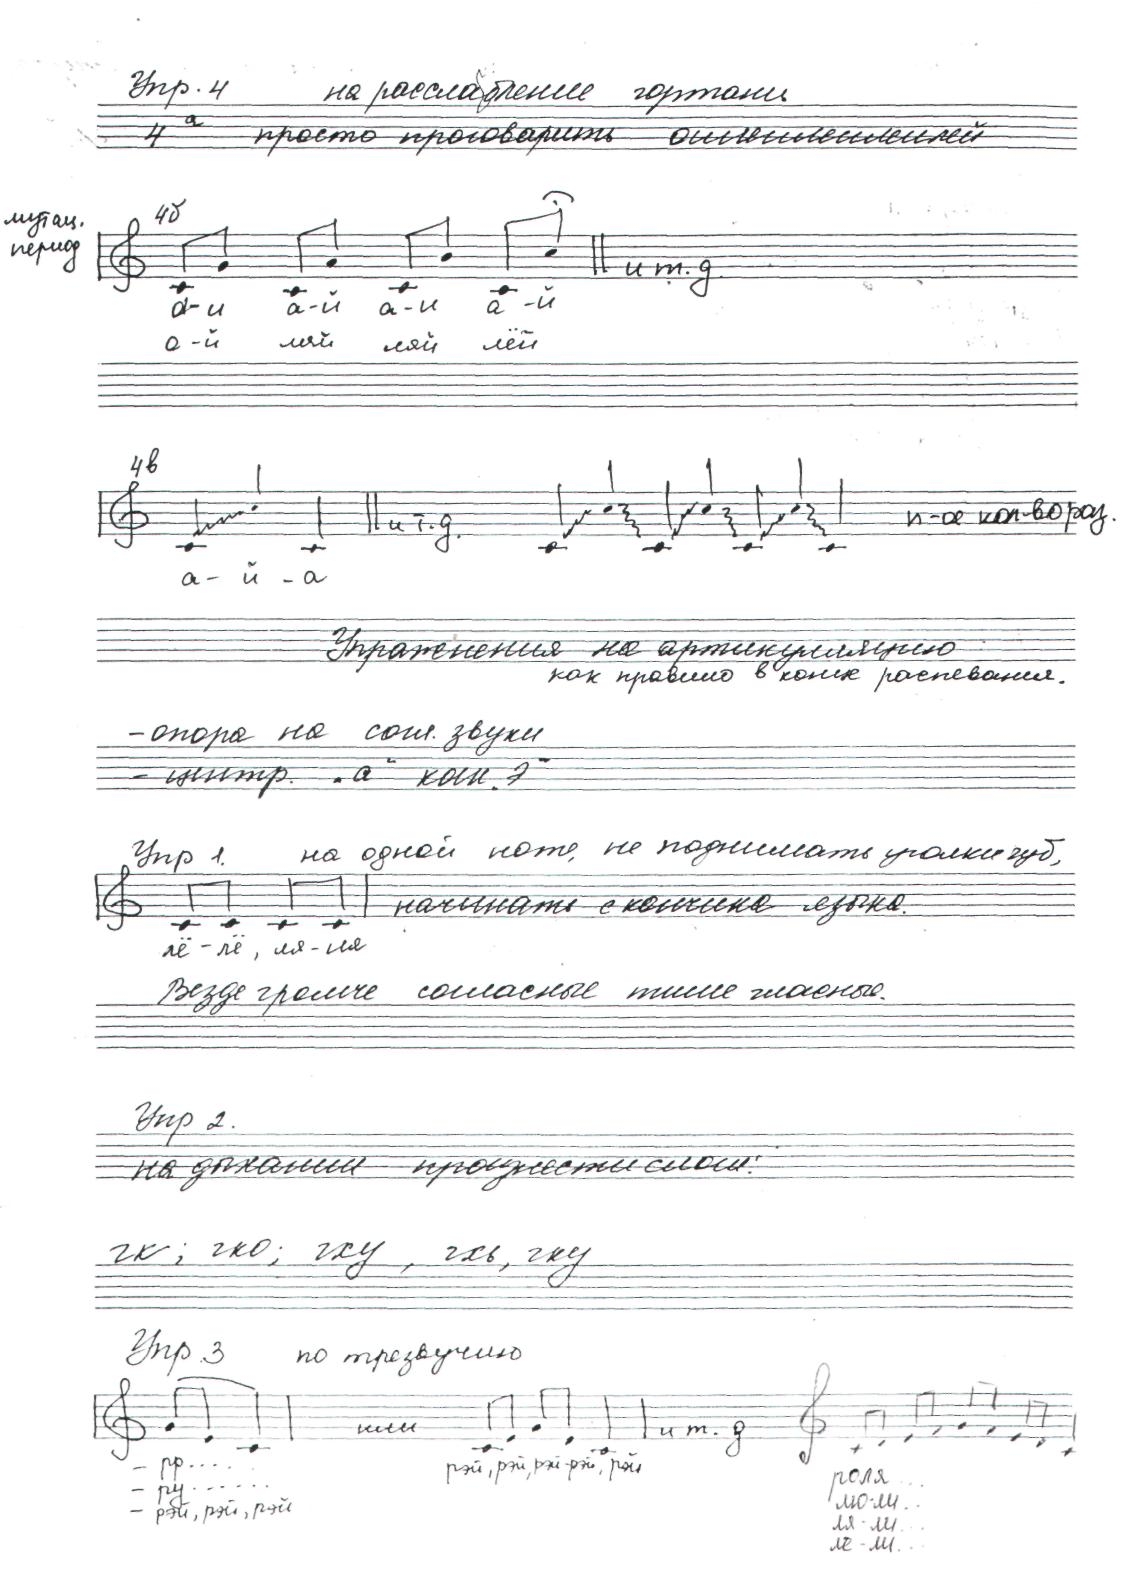 Упр. 4 на расслабление гортани
4а просто проговарить
мутац.
период
4б
и т. д
а-и а-й а-и а-й
а-й ляй ляй лёй
4в
и т.д. п-ое кол-во раз.
а- й -а
Упражнения на артикулляцию
как правило в конце распевания.
-опора на согл. звуки
- центр. "а" как "э"
Упр 1. на одной ноте, не поднимать уголки губ,
начинать с кончика языка.
лё-лё, ля-ля
Везде громче согласные тише гласные.
Упр 2.
на дыхании произнести слоги:
гк; гко; гху, гхь, гку
Упр.3 по трезвучию
или и т. д
- рр..... рэй, рэй, рэй-рэй, рэй роля ...
- ру...... лю-ли..
- рэй, рэй, рэй ля-ли...
ле-ли...